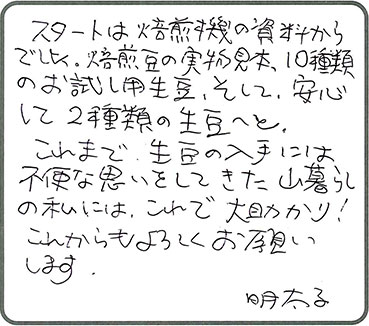 スタートは焙煎機の資料から
でした。焙煎豆の実物見本、10種類
のお試し用生豆、そして、安心
して2種類の生豆へと。
これまで、生豆の入手には
不便な思いをしてきた山暮らし
の私には、これで大助かり!
これからもよろしくお願い
します.
明太子